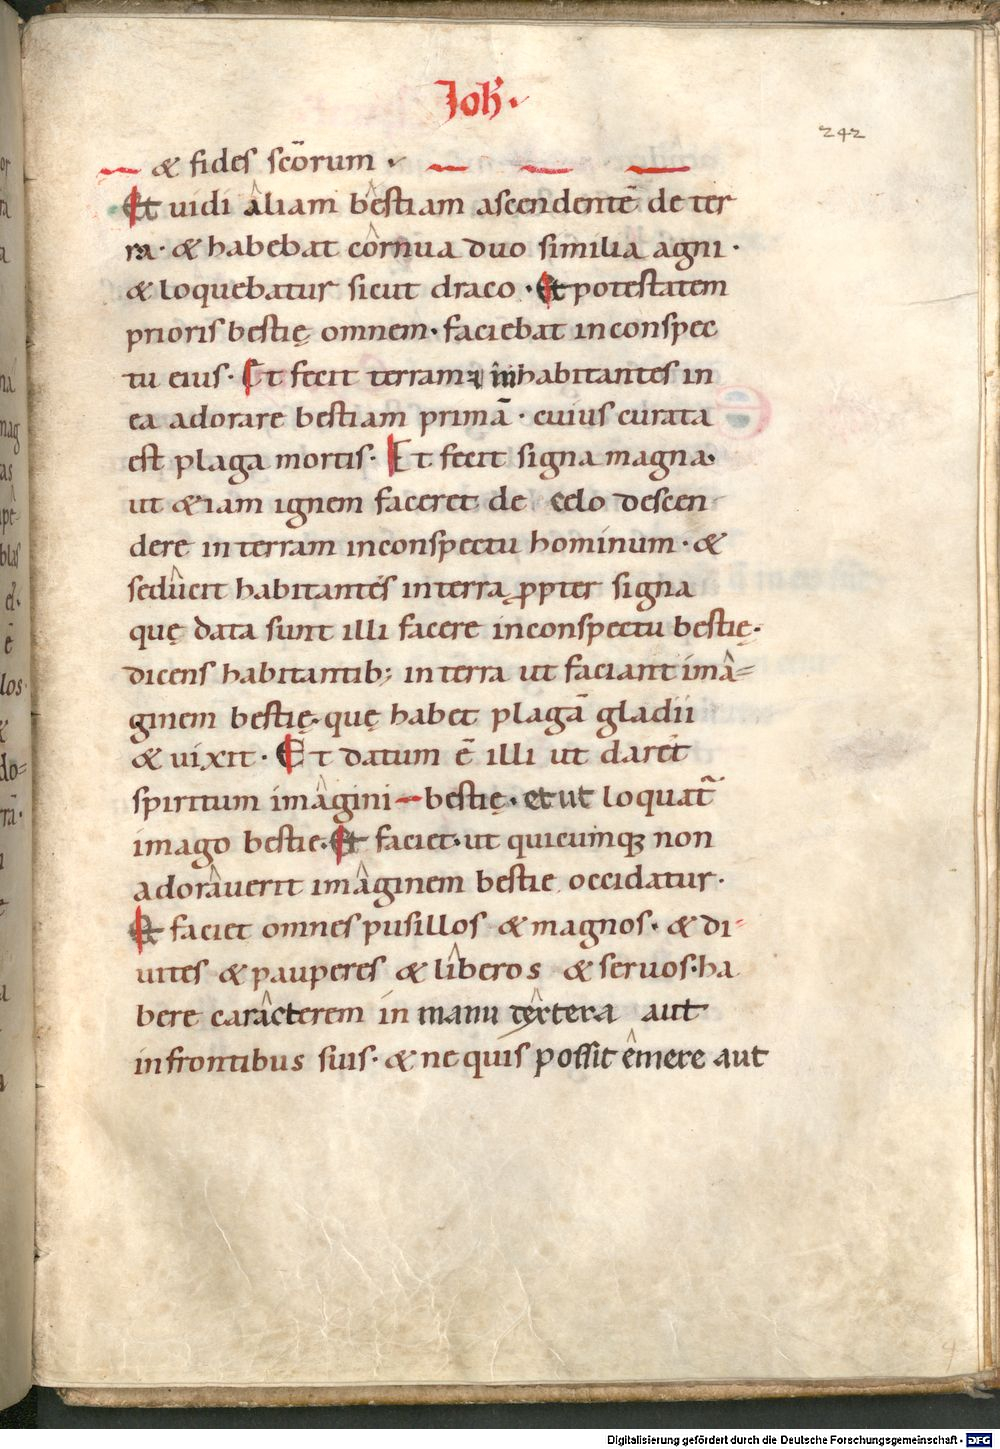 Joh̄.
242
& fides scōrum .
Et uidi âliam bêstiam ascendentē de ter
ra· & habebat côrnua duo similia agni ·
& loquebatur sicut draco · Et potestatem
prioris bestię omnem· faciebat inconspec
tu eius· Et fecit terram ⁊ inhabitantes in
ea adorare bestiam primā · cuius curata
est plaga mortis· Et fecit signa magna·
ut &iam ignem faceret de celo descen
dere in terram inconspectu hominum · &
sedûcit habitantes in terra ꝓpter signa
quę data sunt illi facere inconspectu bestię·
dicens habitantib; in terra ut faciant imâ=
ginem bestię· quę habet plagā gladii
& uixit · Et datum ē illi ut daret
spiritum imâgini bestię · et ut loquat̄
imago bestie· Et faciet· ut quicumqꝫ non
adorâuerit imâginem bestie occidatur·
Et faciet omnes pusillos & magnos· & di-
uites & pauperes & lîberos & seruos· ha
bere carâcterem in manu têxtera aut
in frontibus suis· & ne quis possit êmere aut
Digitalisierung gefördert durch die Deutsche Forschungsgemeinschaft - DFG